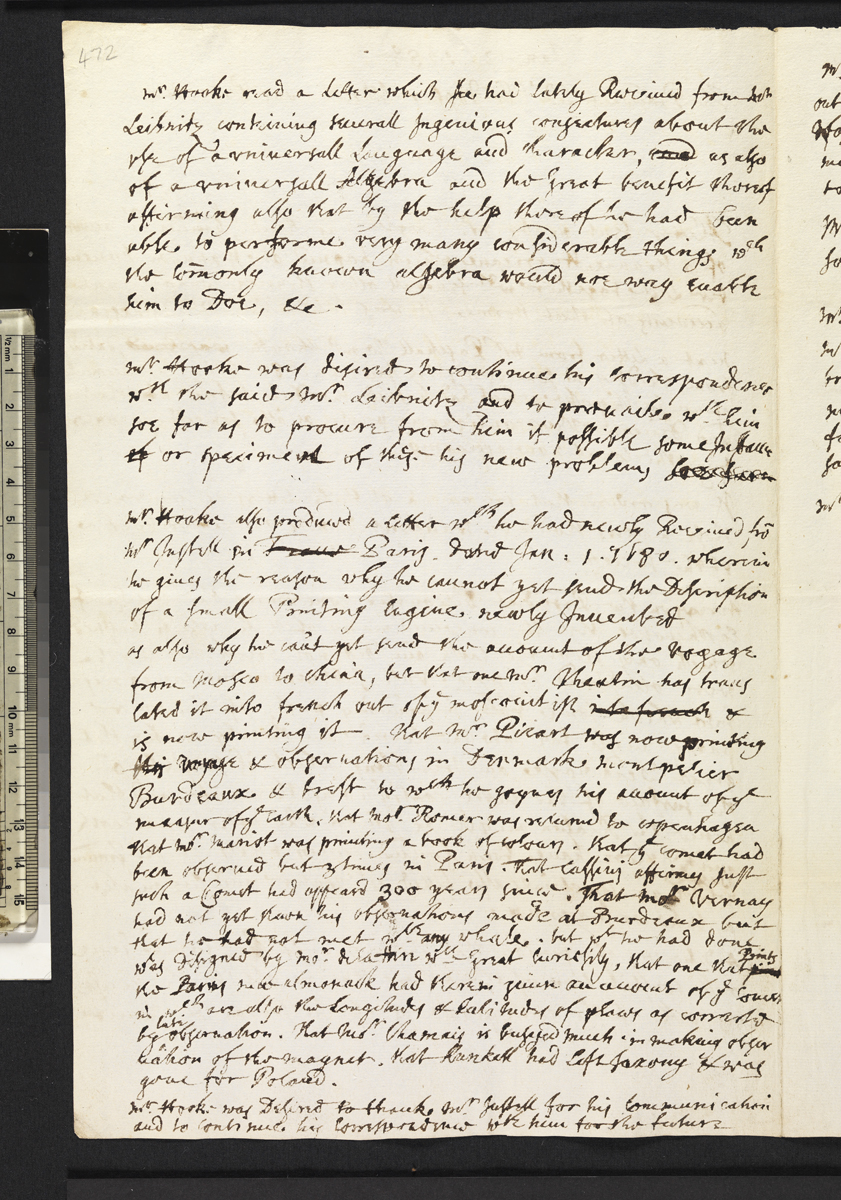 472
mr. Hooke read a Letter which he had lately Received from mr
Leibnitz containing severall Ingenious coniectures about the
vse of a vniversall Language and Character, and as also
of a vniversall Algebra and the great benefit thereof
affirming also that by the help thereof he had been
able to performe very many considerable things wch
the comonly known algebra would noe way enable
him to Doe, &c.
mr. Hooke was desired to continue his Correspondence
wth the said mr. Leibnitz and to prevaile wth him
soe far as to procure from him if possible some Instance
or specimen of this his new problems
mr. Hooke also produced a Letter wch he had newly Received fro
mr Justell in France Paris dated Jan: 1. 1680. wherein
he gives the reason why he cannot yet send the Description
of a small Printing Engine newly Invented
as also why he cant yet send the account of the voyage
from Mosco to China, but that one mr. has trans
lated it into french out of ye moscovitish into french &
is now printing it. that mr. Picart was now printing
his voyage & observations in Denmark montpelier
Burdeaux & brest to wch he joynes his account of ye
measur of ye earth. that mor. Romer was returned to copenhagen
that mr. mariot was printing a book of colours. that ye comet had
been observed but 3 times in Paris. That Cassini affirms Just
such a Comet had appeard 300 years since. That mor Vernay
had not yet shown his observations made at Burdeaux but
that he had not met wth any whale. but wt he had done
was designed by mor. wth great curiosity, that one that Prints
the Paris new almanack had therein given an account of ye comet
in wch are also the Longitudes & Latitudes of places as corrected
by late observation. that mor. is busyed much in making obser
uation of the magnet. that Kunkell had left Saxony & was
gone for Poland.
mr. Hooke was Desired to thank mr. Justell for his Communication
and to continue his correspondence wth him for the future